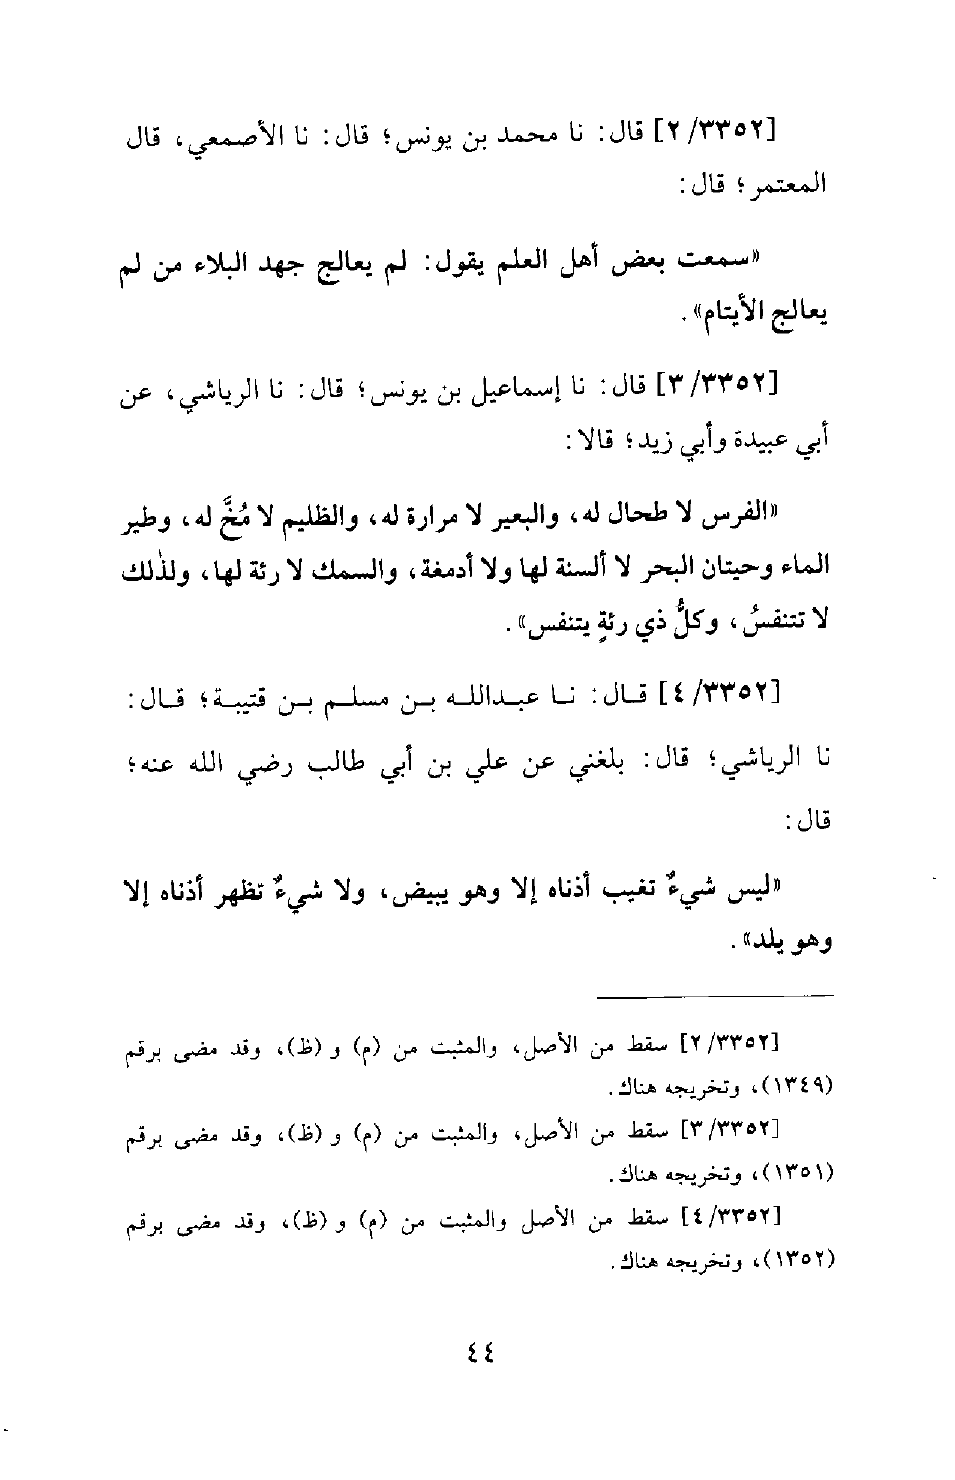 [٣٣٥٢/ ٢] قال: نا محمد بن يونس؛ قال: نا الأصمعي، قال
المعتمر؛ قال:
«سمعت بعض أهل العلم يقول: لم يعالج جهد البلاء من لم
يعالج الأيتام».
[٣٣٥٢/ ٣] قال: نا إسماعيل بن يونس؛ قال: نا الرياشي، عن
أبي عبيدة وأبي زيد؛ قالا:
«الفرس لا طحال له، والبعير لا مرارة له، والظليم لا مُخَّ له، وطير
الماء وحيتان البحر لا ألسنة لها ولا أدمغة، والسمك لا رئة لها، ولذلك
لا تتنفسُ، وكلُّ ذي رئةٍ يتنفس».
[٣٣٥٢/ ٤] قال: نا عبدالله بن مسلم بن قتيبة؛ قال:
نا الرياشي؛ قال: بلغني عن علي بن أبي طالب رضي الله عنه؛
قال:
«ليس شيءٌ تغيب أذناه إلا وهو يبيض، ولا شيءٌ تظهر أذناه إلا
وهو يلد».
[٣٣٥٢/ ٢] سقط من الأصل، والمثبت من (م) و (ظ)، وقد مضى برقم
(١٣٤٩)، وتخريجه هناك.
[٣٣٥٢/ ٣] سقط من الأصل، والمثبت من (م) و (ظ)، وقد مضى برقم
(١٣٥١)، وتخريجه هناك.
[٣٣٥٢/ ٤] سقط من الأصل والمثبت من (م) و (ظ)، وقد مضى برقم
(١٣٥٢)، وتخريجه هناك.
٤٤